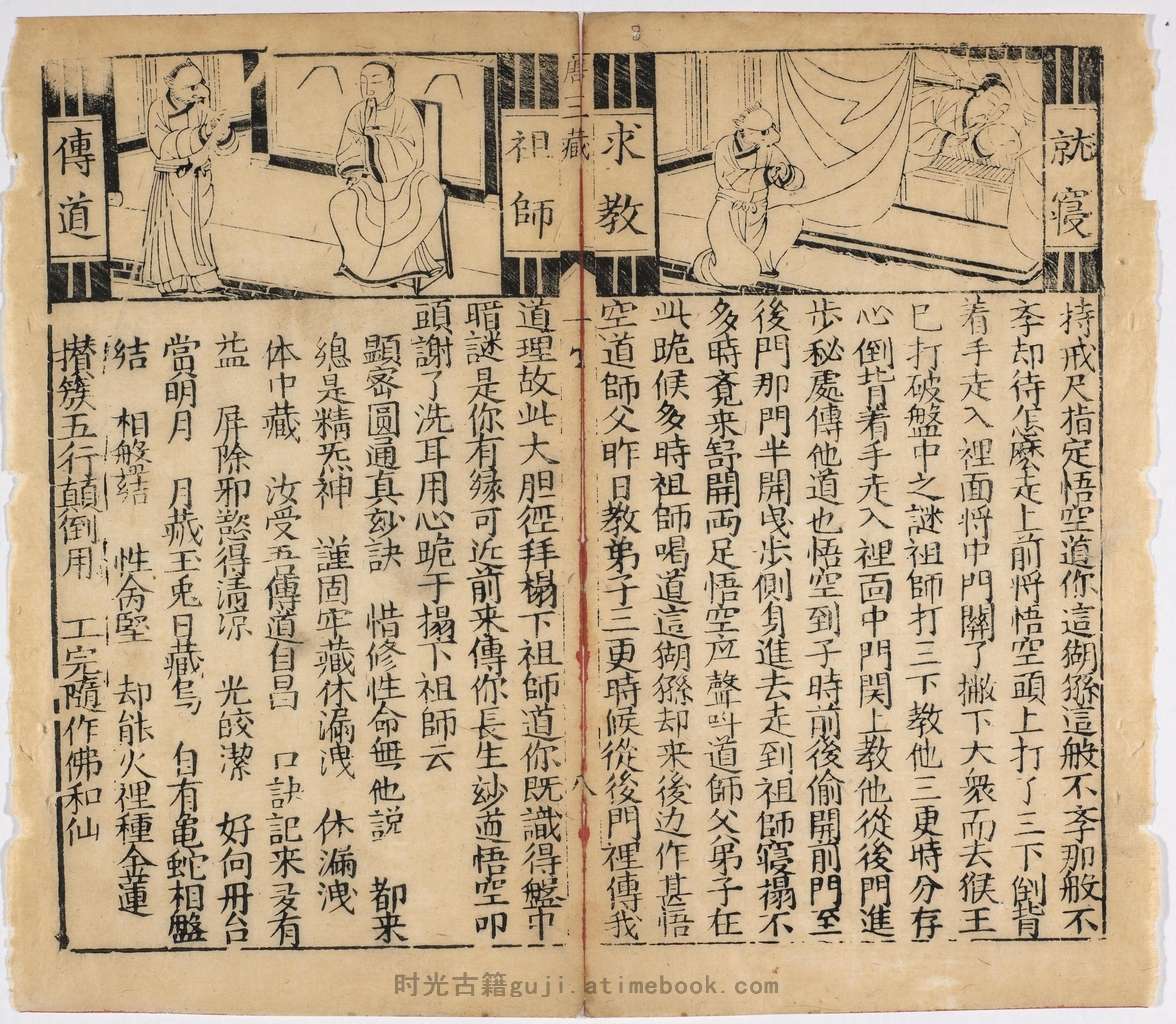 就寢
求教
持戒尺指定悟空道你這猢猻這般不孝那般不
孝却待怎麼走上前將悟空頭上打了三下倒背
着手走入裡面将中門關了撇下大衆而去猴王
已打破盤中之謎祖師打三下教他三更時分存
心倒背着手走入裡面中門関上教他從後門進
步秘處傳他道也悟空到子時前後偷開前門至
後門那門半開曳步側身進去走到祖師寢搨不
多時竟來舒開両足悟空应聲叫道師父弟子在
此跪候多時祖師喝道這猢猻却来後边作甚悟
空道師父昨日教弟子三更時候從後門裡傳我
唐三藏
八
祖師
傳道
道理故此大胆徑拜榻下祖師道你既識得盤中
暗謎是你有緣可近前来傳你長生妙道悟空叩
頭謝了洗耳用心跪于搨下祖師云
顯密圓通真玅訣 惜修性命無他說 都来
緫是精炁神 謹固牢藏休漏洩 休漏洩
体中藏 汝受吾傳道自昌 口訣記来多有
益 屏除邪慾得清凉 光皎潔 好向丹台
賞明月 月藏玉兎日藏烏 自有龜蛇相盤
結 相盤結 性命堅 却能火裡種金蓮
攅簇五行顛倒用 工完隨作佛和仙
时光古籍guji.atimebook.com